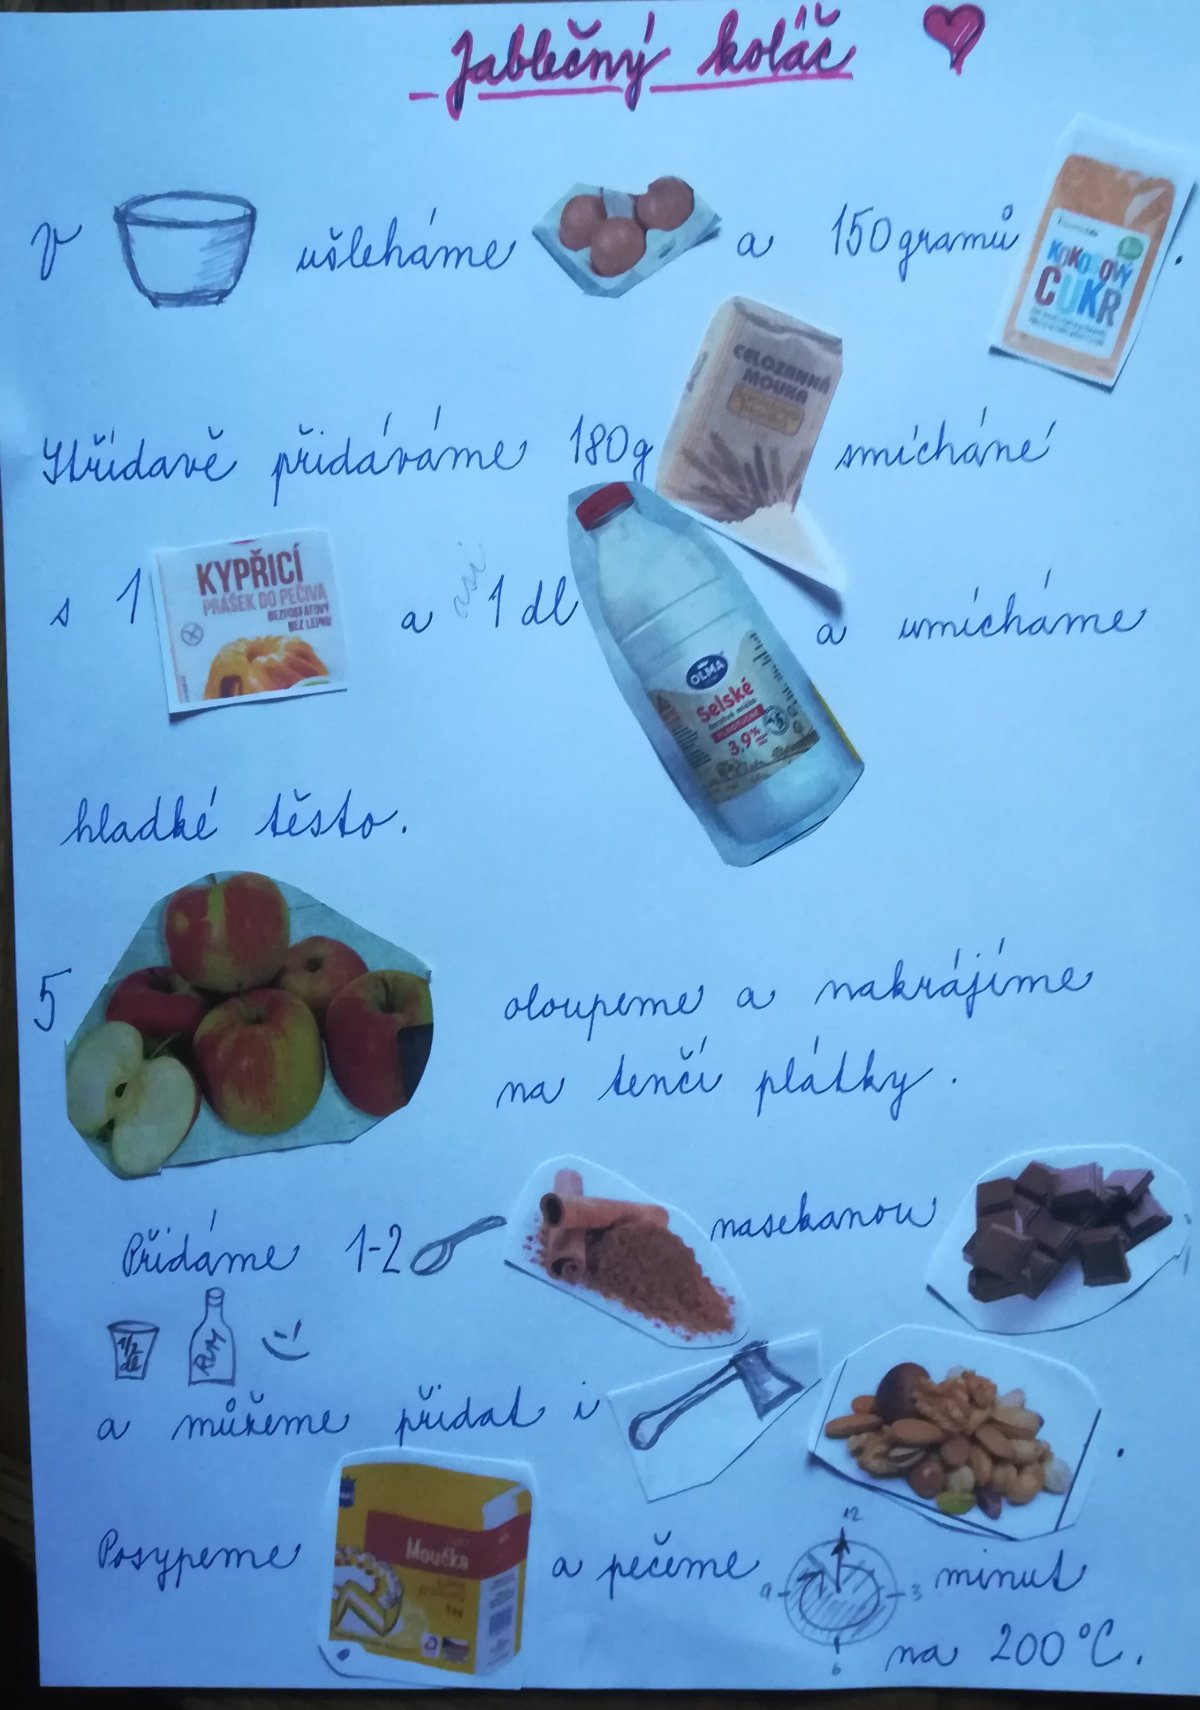 Jablečný koláč
V ušleháme a 150 gramů KOKOSOVÝ CUKR .
CELOZRNNÁ MOUKA
Střídavě přidáváme 180g smícháné
s 1 KYPŘICÍ PRÁŠEK DO PEČIVA BEZFOSFÁTOVÝ BEZ LEPKU a asi 1 dl a umícháme
OLMA
Selské
3,9%
hladké těsto.
5 oloupeme a nakrájíme
na tenčí plátky.
Přidáme 1-2 nasekanou
1/2 dl RUM
a můžeme přidat i .
Posypeme Moučka a pečeme 12 3 6 9 minut
na 200°C.